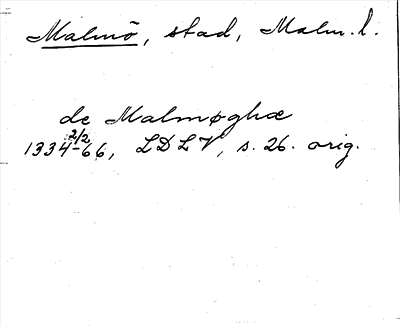 Malmö, stad, Malm. l.
de Malmøghæ
1334 2/2 -66, LDLV, s. 26. orig.